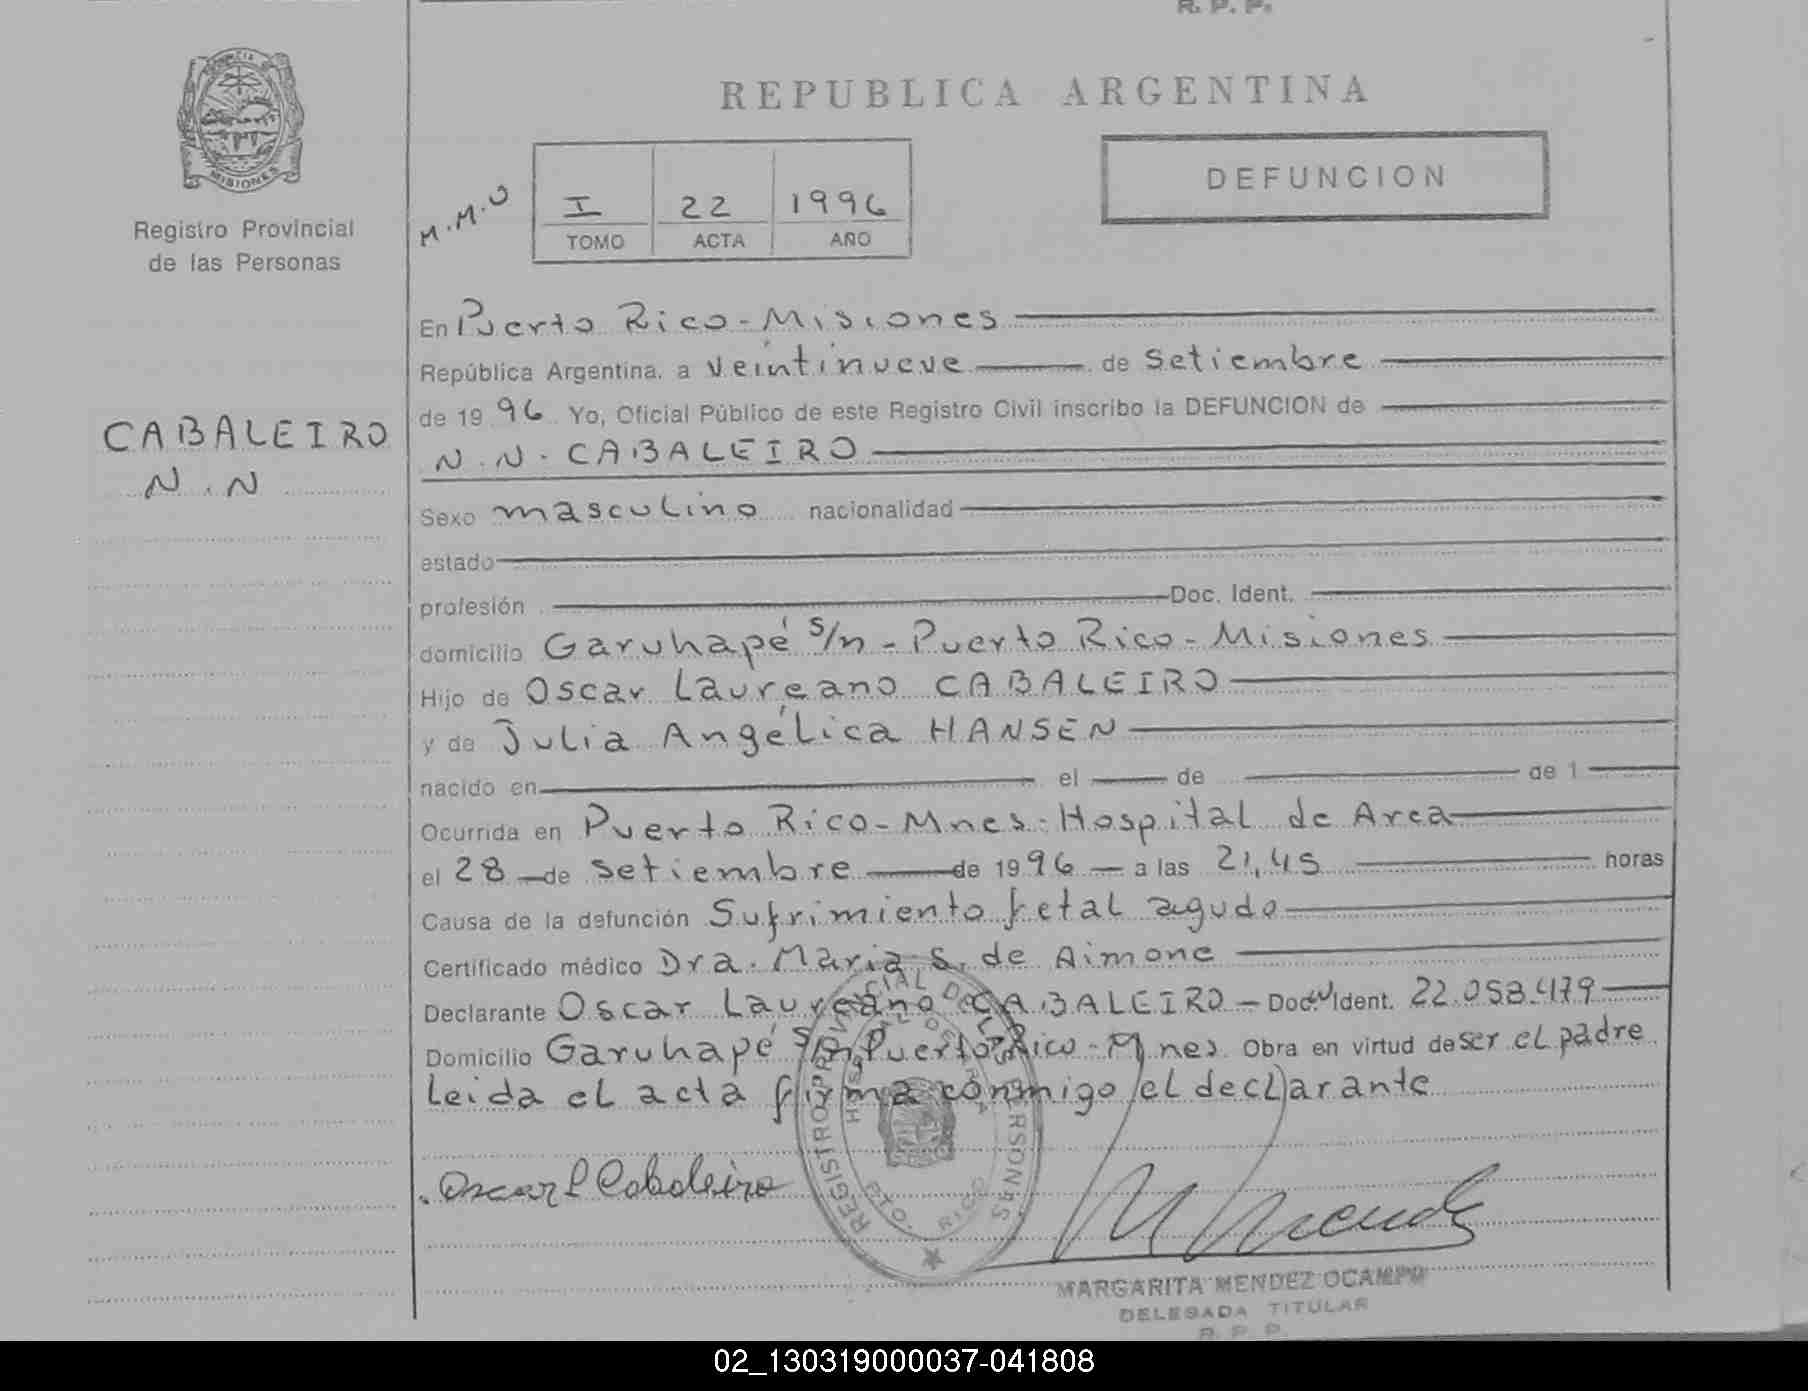 R. P. P.
PROVINCIA
MISIONES
Registro Provincial
de las Personas
REPUBLICA ARGENTINA
DEFUNCION
M.M.U
I 22 1996
TOMO ACTA AÑO
CABALEIRO
N.N
En Puerto Rico - Misiones
República Argentina, a veintinueve de Setiembre
de 1996 Yo, Oficial Público de este Registro Civil inscribo la DEFUNCION de
N.N. CABALEIRO
Sexo masculino nacionalidad
estado
profesión Doc. Ident.
domicilio Garuhapé s/n - Puerto Rico - Misiones
Hijo de Oscar Laureano CABALEIRO
y de Julia Angélica HANSEN
nacido en el de de 1
Ocurrida en Puerto Rico - Mnes - Hospital de Area
el 28 de Setiembre de 1996 a las 21,45 horas
Causa de la defunción Sufrimiento fetal agudo
Certificado médico Dra. Maria S. de Aimone
Declarante Oscar Laureano CABALEIRO - Doc. Ident. 22.053.479
Domicilio Garuhapé s/n Puerto Rico - Mnes. Obra en virtud de ser el padre
Leida el acta firma conmigo el declarante
REGISTRO PROVINCIAL DE LAS PERSONAS
HOSPITAL DE AREA
PTO. RICO
Oscar L Cabaleiro
MARGARITA MENDEZ OCAMPO
DELEGADA TITULAR
R. P. P.
02_130319000037-041808